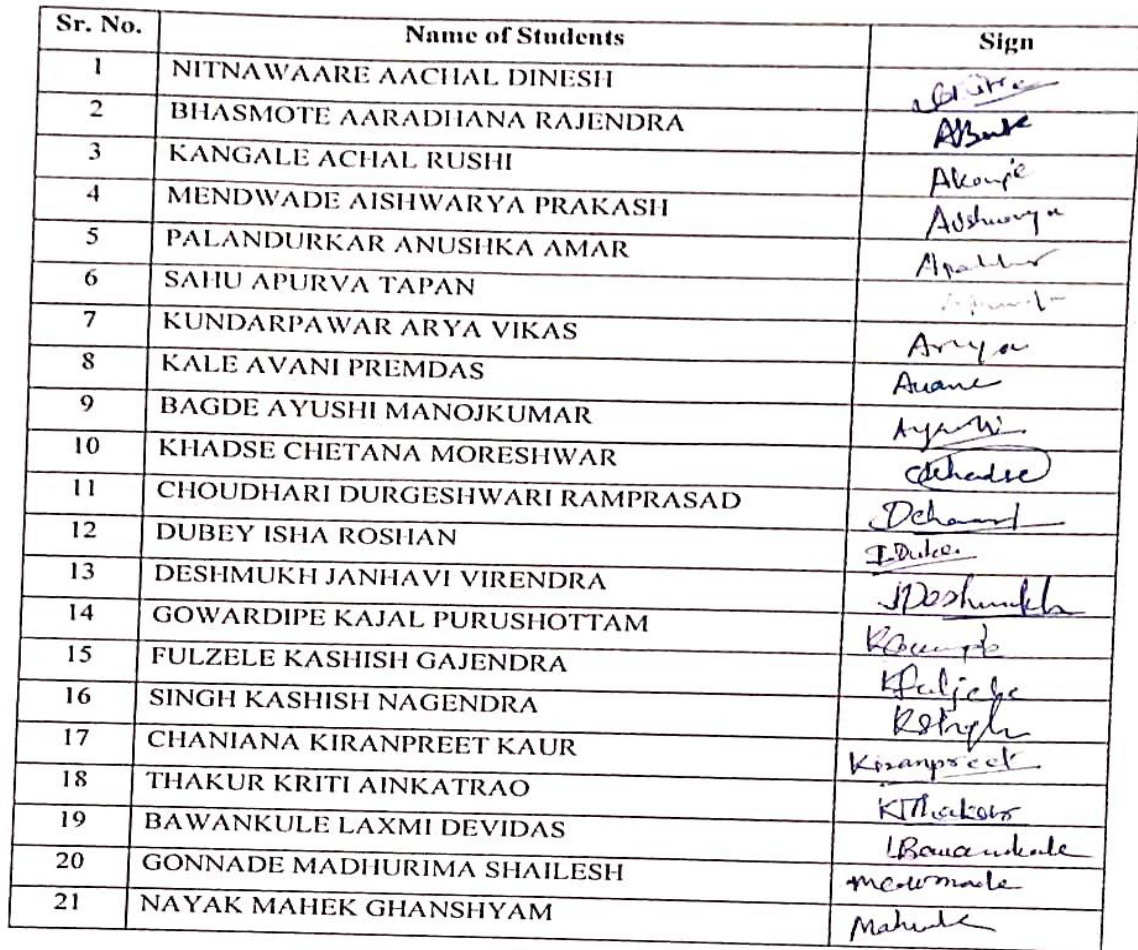 Sr. No. Name of Students Sign
1 NITNAWAARE AACHAL DINESH
2 BHASMOTE AARADHANA RAJENDRA
3 KANGALE ACHAL RUSHI
4 MENDWADE AISHWARYA PRAKASH
5 PALANDURKAR ANUSHKA AMAR
6 SAHU APURVA TAPAN
7 KUNDARPAWAR ARYA VIKAS Arya
8 KALE AVANI PREMDAS
9 BAGDE AYUSHI MANOJKUMAR
10 KHADSE CHETANA MORESHWAR
11 CHOUDHARI DURGESHWARI RAMPRASAD
12 DUBEY ISHA ROSHAN
13 DESHMUKH JANHAVI VIRENDRA JDeshmukh
14 GOWARDIPE KAJAL PURUSHOTTAM
15 FULZELE KASHISH GAJENDRA
16 SINGH KASHISH NAGENDRA KSingh
17 CHANIANA KIRANPREET KAUR Kiranpreet
18 THAKUR KRITI AINKATRAO
19 BAWANKULE LAXMI DEVIDAS
20 GONNADE MADHURIMA SHAILESH
21 NAYAK MAHEK GHANSHYAM